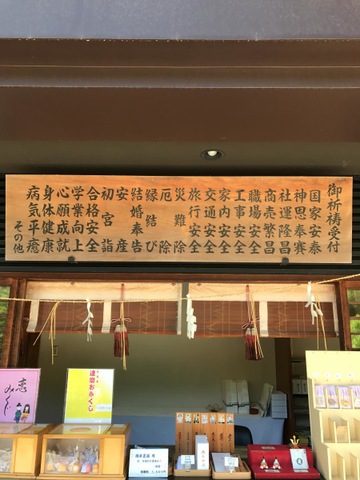 御祈祷受付
国家安泰
神恩奉賽
社運隆昌
商売繁昌
職場安全
工事安全
家内安全
交通安全
旅行安全
災難除
厄除
縁結び
結婚奉告
安産
初宮詣
合格安全
学業向上
心願成就
身体健康
病気平癒
その他
恋みくじ
達磨おみくじ